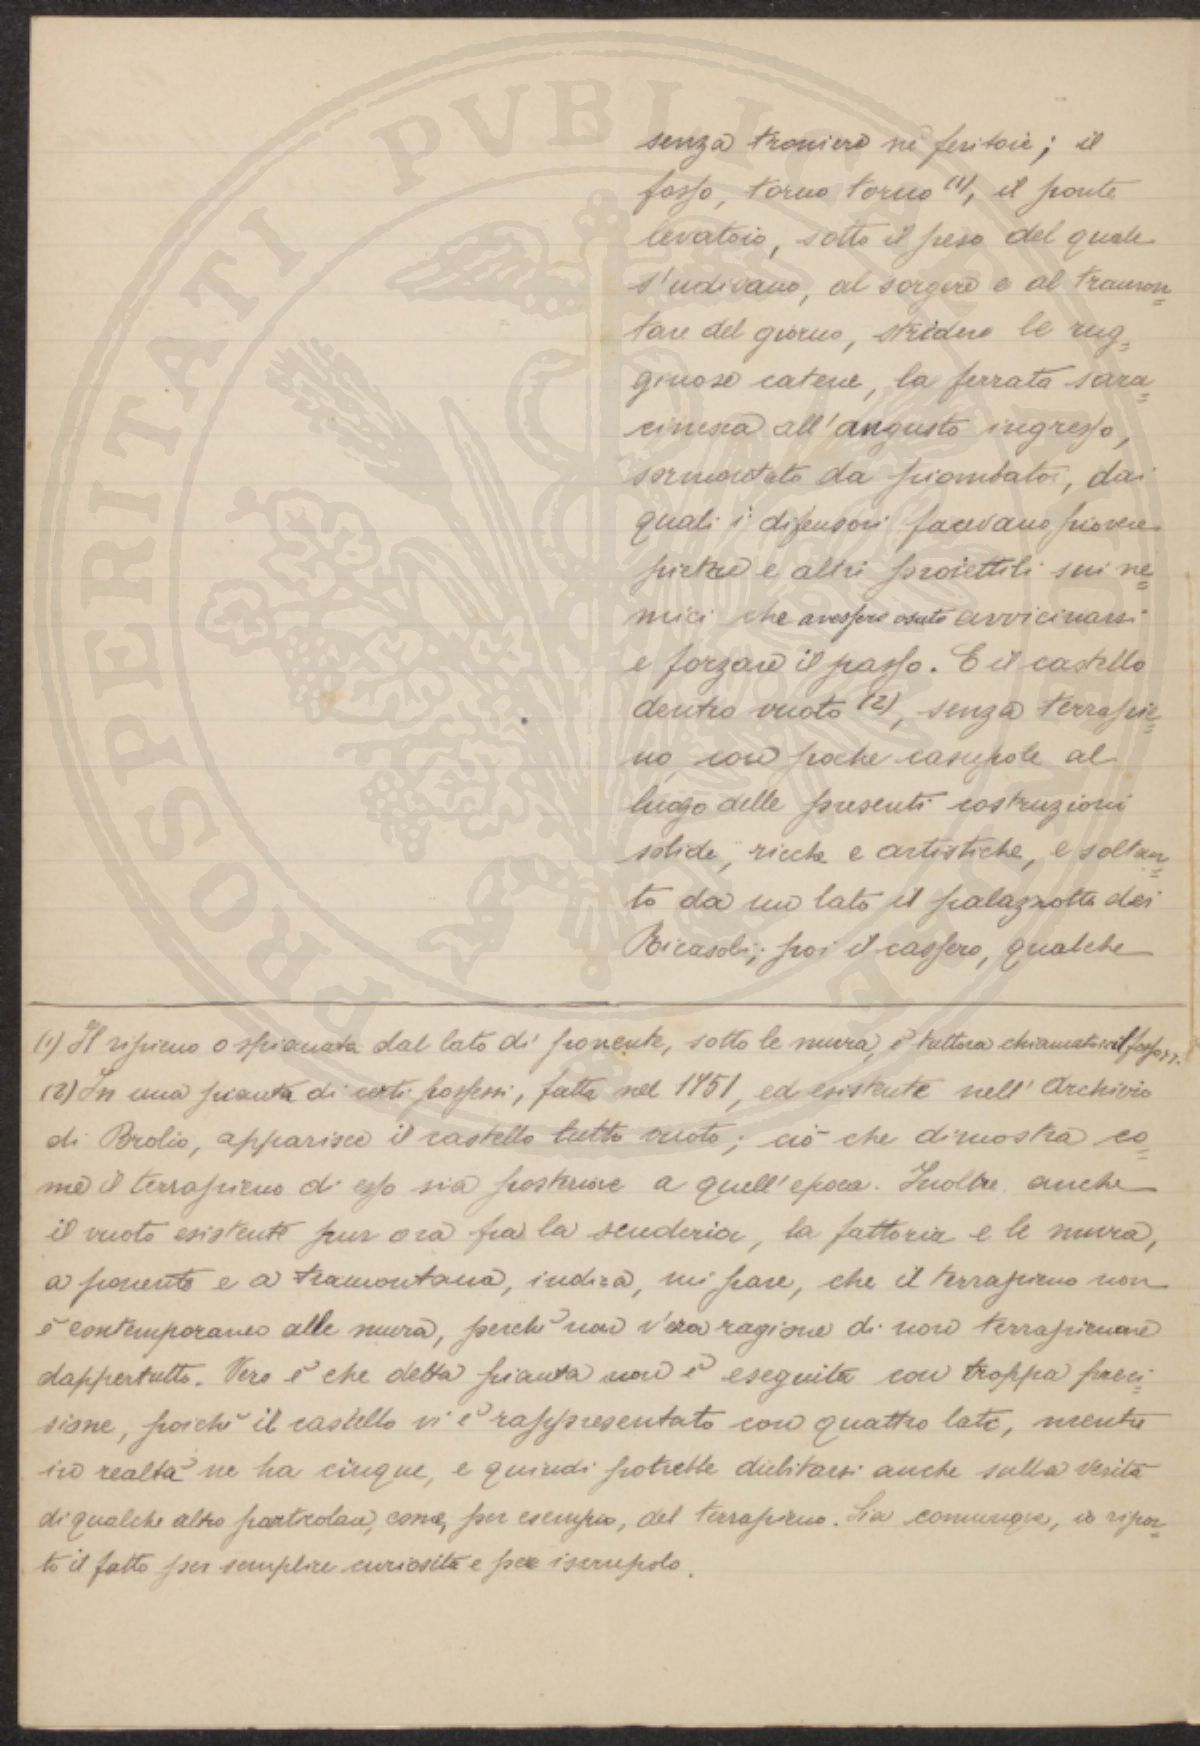 senza troniere nè feritoie; il
fosso, torno torno (1), il ponte
levatoio, sotto il peso del quale
s'udivano, al sorgere e al tramon=
tare del giorno, stridere le rug=
ginose catene, la ferrata sara=
cinesca all'angusto ingresso,
sormontato da piombatoi, dai
quali i difensori facevano piovere
pietre e altri proiettili sui ne=
mici che avessero osato avvicinarsi
e forzare il passo. E il castello
dentro vuoto (2), senza terrapie=
no, con poche casupole al
luogo delle presenti costruzioni
solide, ricche e artistiche, e soltan=
to da un lato il palazzotto dei
Ricasoli; poi il cassero, qualche
(1) Il ripieno o spianata dal lato di ponente, sotto le mura, è tuttora chiamato «il fosso».
(2) In una pianta di certi possessi, fatta nel 1751, ed esistente nell'Archivio
di Brolio, apparisce il castello tutto vuoto; ciò che dimostra co=
me il terrapieno di esso sia posteriore a quell'epoca. Inoltre anche
il vuoto esistente pur ora fra la scuderia, la fattoria e le mura,
a ponente e a tramontana, indica, mi pare, che il terrapieno non
è contemporaneo alle mura, perchè non v'era ragione di non terrapienare
dappertutto. Vero è che detta pianta non è eseguita con troppa preci=
sione, poichè il castello vi è rappresentato con quattro lati, mentre
in realtà ne ha cinque, e quindi potrebbe dubitarsi anche sulla verità
di qualche altro particolare, come, per esempio, del terrapieno. Sia comunque, io ripor=
to il fatto per semplice curiosità e per iscrupolo.
PROSPERITATI PVBLICAE